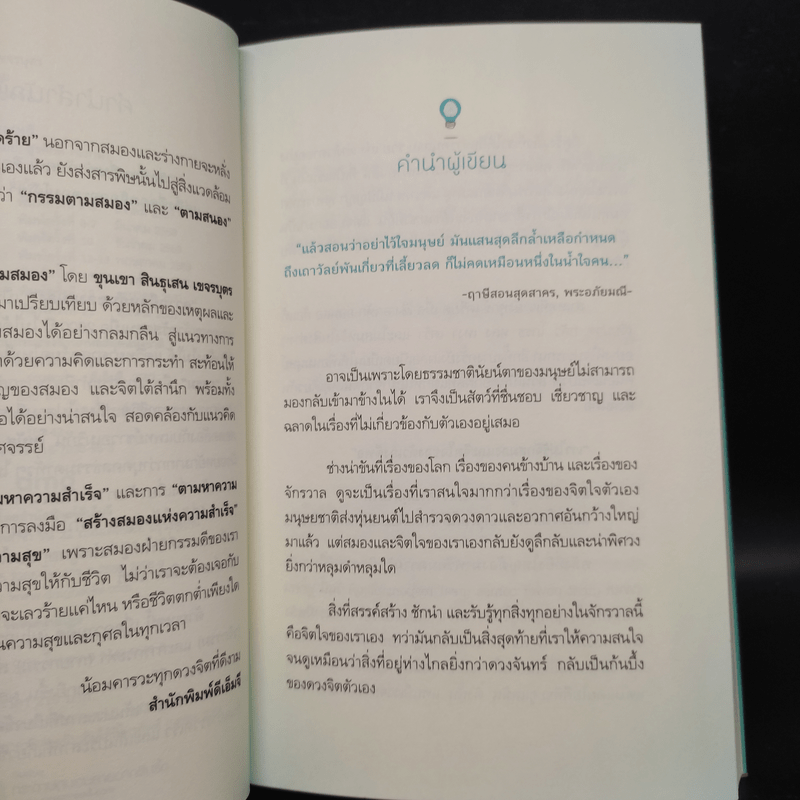 ดร้าย” นอกจากสมองและร่างกายจะหลั่ง
เองแล้ว ยังส่งสารพิษนั้นไปสู่สิ่งแวดล้อม
ว่า “กรรมตามสมอง” และ “ตามสนอง”
มสมอง” โดย ขุนเขา สินธุเสน เขจรบุตร
มาเปรียบเทียบ ด้วยหลักของเหตุผลและ
สมองได้อย่างกลมกลืน สู่แนวทางการ
ด้วยความคิดและการกระทำ สะท้อนให้
ญของสมอง และจิตใต้สำนึก พร้อมทั้ง
อได้อย่างน่าสนใจ สอดคล้องกับแนวคิด
ศจรรย์
มหาความสำเร็จ” และการ “ตามหาความ
การลงมือ “สร้างสมองแห่งความสำเร็จ”
ามสุข” เพราะสมองฝ่ายกรรมดีของเรา
วามสุขให้กับชีวิต ไม่ว่าเราจะต้องเจอกับ
จะเลวร้ายแค่ไหน หรือชีวิตตกต่ำเพียงใด
นความสุขและกุศลในทุกเวลา
น้อมคารวะทุกดวงจิตที่ดีงาม
สำนักพิมพ์ดีเอ็มจี
คำนำผู้เขียน
“แล้วสอนว่าอย่าไว้ใจมนุษย์ มันแสนสุดลึกล้ำเหลือกำหนด
ถึงเถาวัลย์พันเกี่ยวที่เลี้ยวลด ก็ไม่คดเหมือนหนึ่งในน้ำใจคน...”
-ฤาษีสอนสุดสาคร, พระอภัยมณี-
อาจเป็นเพราะโดยธรรมชาตินัยน์ตาของมนุษย์ไม่สามารถ
มองกลับเข้ามาข้างในได้ เราจึงเป็นสัตว์ที่ชื่นชอบ เชี่ยวชาญ และ
ฉลาดในเรื่องที่ไม่เกี่ยวข้องกับตัวเองอยู่เสมอ
ช่างน่าขันที่เรื่องของโลก เรื่องของคนข้างบ้าน และเรื่องของ
จักรวาล ดูจะเป็นเรื่องที่เราสนใจมากกว่าเรื่องของจิตใจตัวเอง
มนุษยชาติส่งหุ่นยนต์ไปสำรวจดวงดาวและอวกาศอันกว้างใหญ่
มาแล้ว แต่สมองและจิตใจของเราเองกลับยังดูลึกลับและน่าพิศวง
ยิ่งกว่าหลุมดำหลุมใด
สิ่งที่สรรค์สร้าง ชักนำ และรับรู้ทุกสิ่งทุกอย่างในจักรวาลนี้
คือจิตใจของเราเอง ทว่ามันกลับเป็นสิ่งสุดท้ายที่เราให้ความสนใจ
จนดูเหมือนว่าสิ่งที่อยู่ห่างไกลยิ่งกว่าดวงจันทร์ กลับเป็นก้นบึ้ง
ของดวงจิตตัวเอง